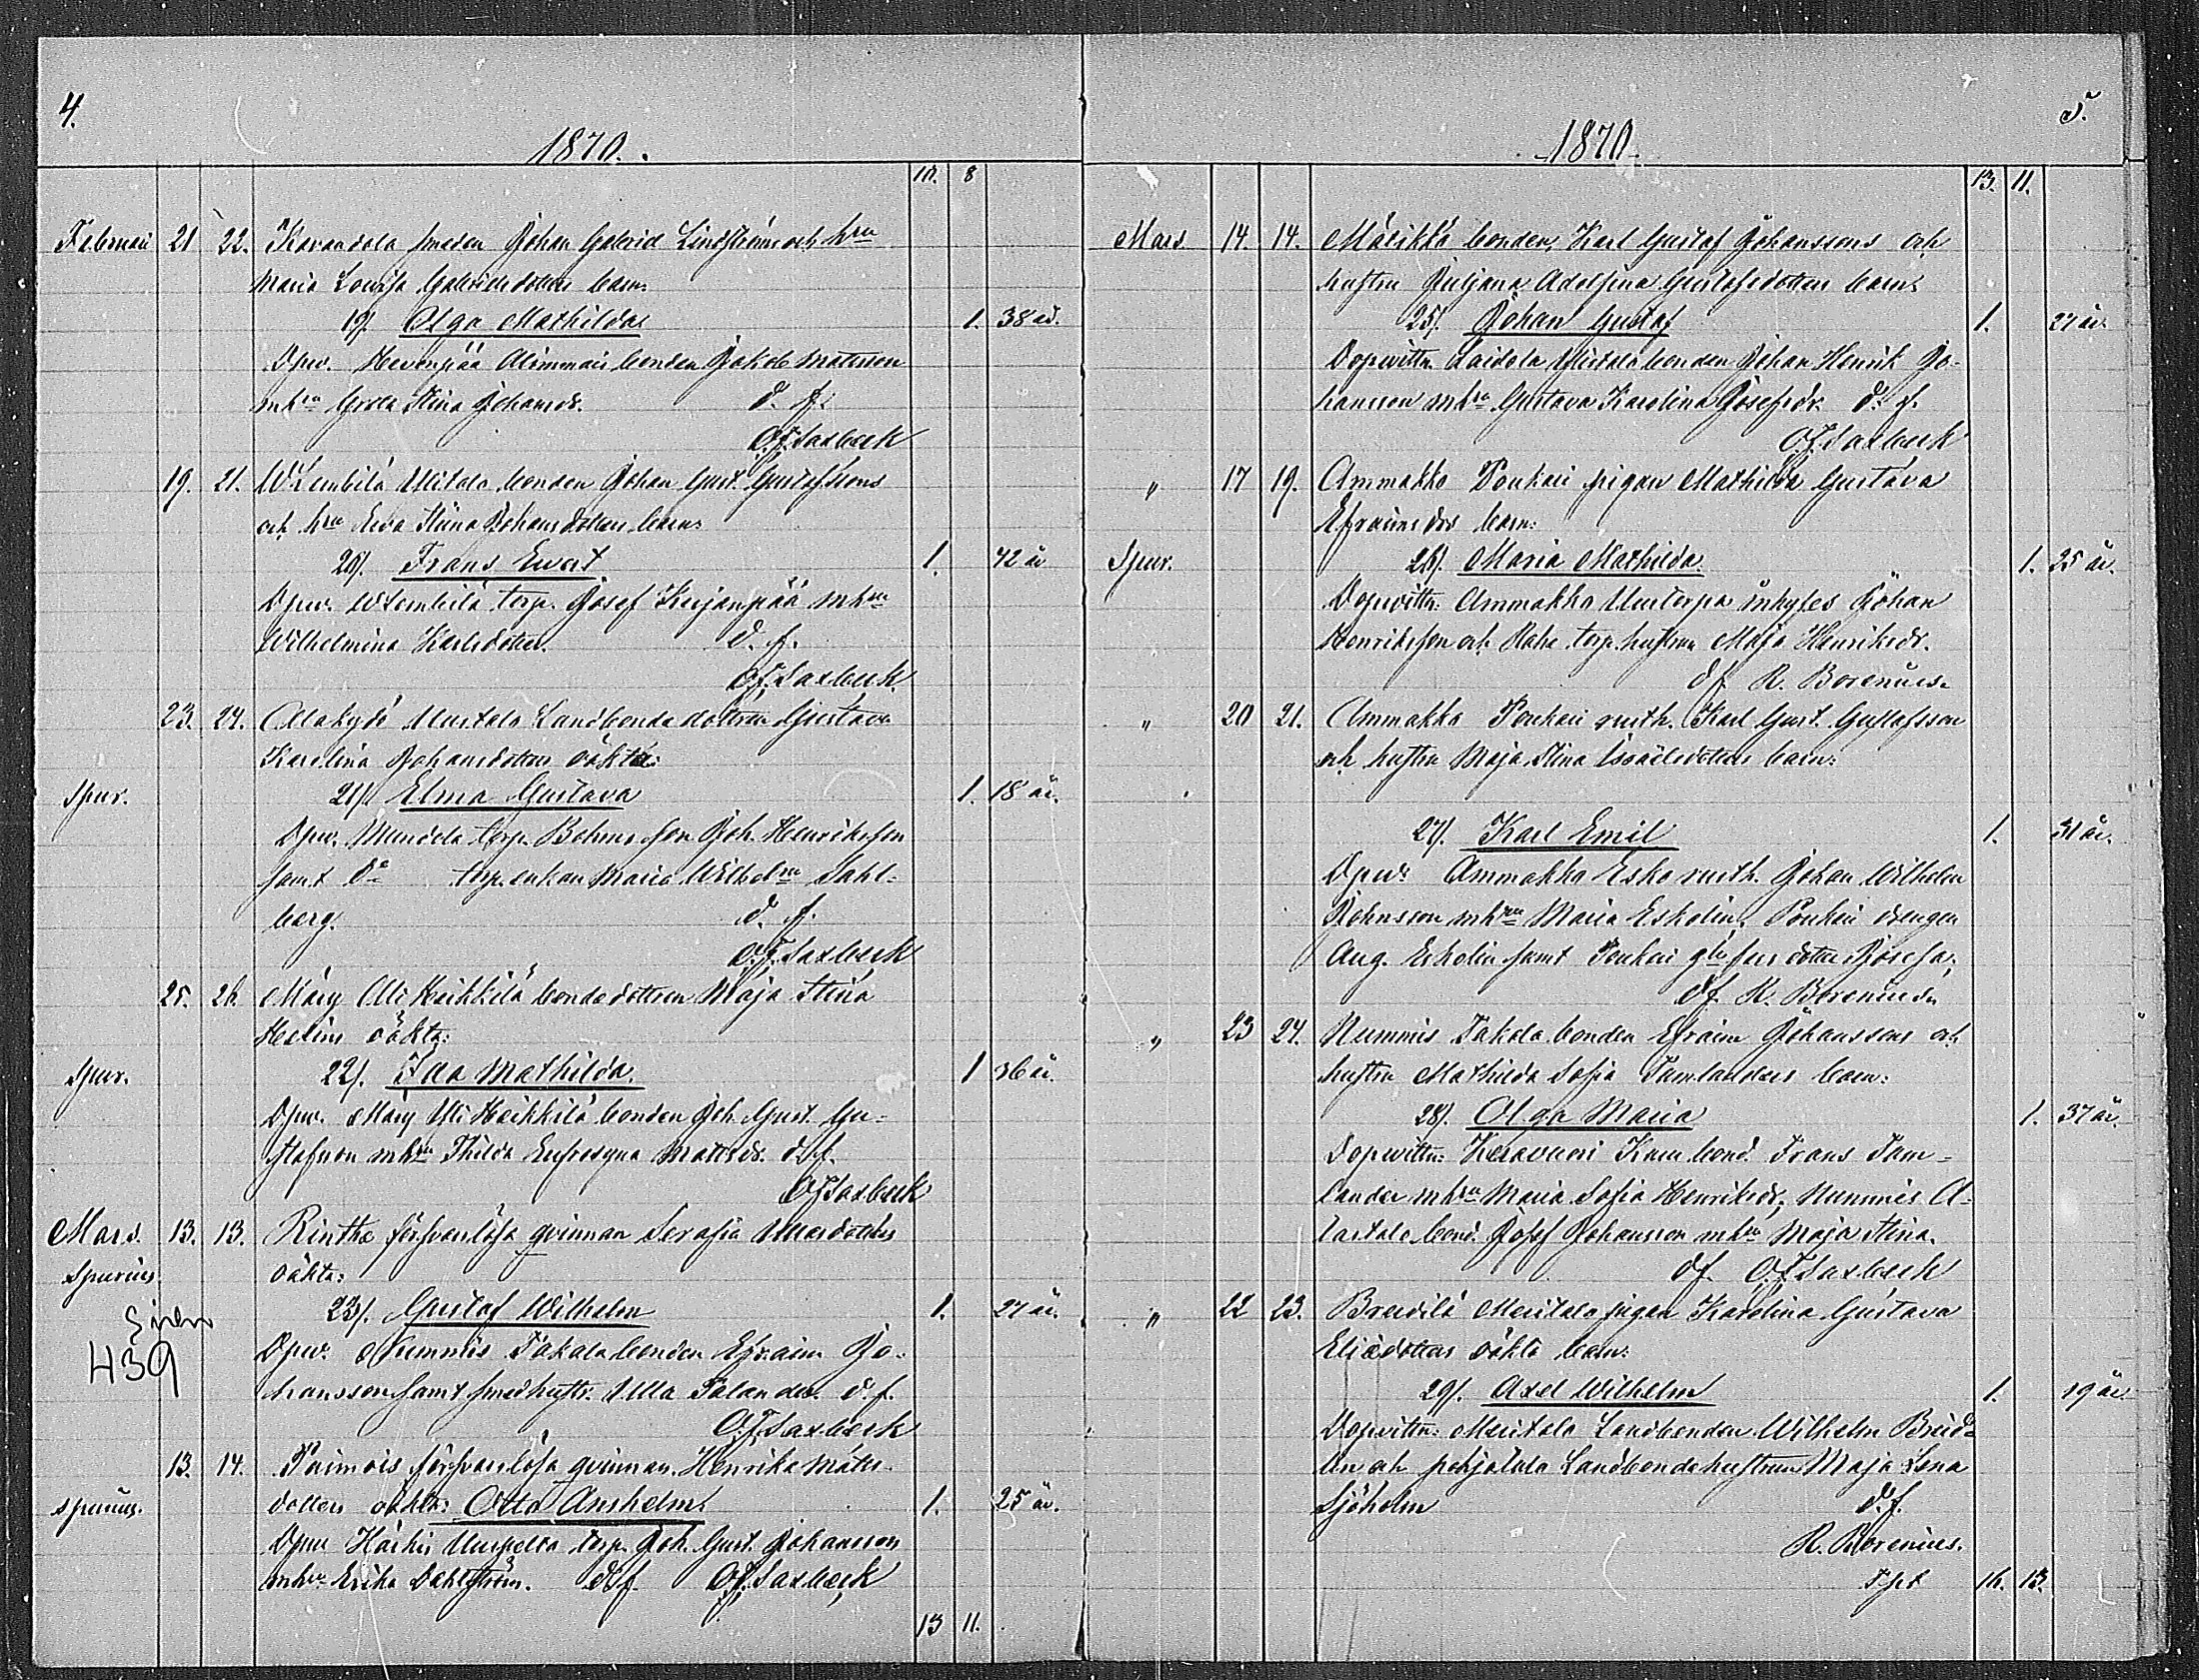 4.
1870.
10. 8
Februari 21 22. Karandola smeden Johan Gabriel Lindströms och hru
Maria Lovisa Gabrielsdotters barn:
19). Olga Mathilda 1. 38 år.
Dpw. Hevonpää Alimmais bonden Jakob Matsson
mhru Greta Stina Johansdr. d. f.
O.F. Saxbeck
19. 21. WLembilä Ylitalo bonden Johan Gust. Gustafssons
och hru Eva Stina Johansdotters barn:
20). Frans Evert 1. 42 år
Dpw. WLembilä torp. Josef Kujanpää mhru
Wilhelmina Karlsdotter. d. f.
O.F. Saxbeck.
23. 24. Alakylä Uusitalo Landbondedottren Gustava
Karolina Johansdotters oäkta:
Spur. 21). Elma Gustava 1. 18 år.
Dpw. torp. son Joh. Henriksson
samt Do torp. enkan Maria Wilhelma Sahl-
berg. d. f.
O.F. Saxbeck
25. 26. Märy Ali Heikkilä bondedottren Maja Stina
Helins oäkta:
Spur. 22). Ida Mathilda. 1 36 år.
Dpw. Märy Yli Heikkilä bonden Joh. Gust. Gu-
stafsson mhru Thilda Eufrosyna Mattsdr. d. f.
O.F. Saxbeck
Mars. 13. 13. Rinthe försvarslösa qvinnan Serafia dotters
Spurius. oäkta:
23). Gustaf Wilhelm 1. 27 år.
439
Dpw. Nummis Takala bonden Efraim Jo-
hansson samt smedhustr. Ulla Salander. d. f.
O.F. Saxbeck
13. 14. Paimois försvarslösa qvinnan Henrika Mats-
spurius. dotters oäkta: Otto Anshelm. 1. 25 år.
Dpw. Härkis torp. Joh. Gust. Johansson
mhru Erika Dahlström. d. f. O.F. Saxbeck
13 11.
5.
1870
13. 11.
Mars 14. 14. Mälikkä bonden Karl Gustaf Johanssons och
hustru Juljana Adolfina Gustafsdotters barn:
25). Johan Gustaf 1. 27 år.
Dopwittn. Laidola Ylitalo bonden Johan Henrik Jo-
hansson mhru Gustava Karolina Josefsdr. d. f.
O.F. Saxbeck
" 17 19. Ammakko Poukari pigan Mathilda Gustava
Efraimsdrs barn:
Spur. 26). Maria Mathilda. 1. 25 år.
Dopwittn: Ammakko inhyses Johan
Henriksson och torp. hustrun Maja Henriksdr.
df R. Borenius.
" 20 21. Ammakko Poukari rusth. Karl Gust. Gustafsson
och hustru Maja Stina Israelsdotters barn:
27). Karl Emil 1. 31 år.
Dpw: Ammakko Esko rusth. Johan Wilhelm
Johnsson mhru Maria Eskolin, Poukari drengen
Aug. Eskolin samt Poukari dotter Josefa,
df R. Borenius.
" 23 24. Nummis Takala bonden Efraim Johanssons och
hustru Mathilda Sofia Tamlanders barn:
28). Olga Maria 1. 37 år.
Dopwittn: bond. Frans Tam-
lander mhru Maria Sofia Henriksdr, Nummis A-
lastalo bond. Josef Johansson mhru Maja Stina.
df. O.F. Saxbeck
" 22 23. Breidilä Meritalo pigan Karolina Gustava
Eliædotters oäkta barn:
29). Axel Wilhelm 1. 19 år.
Dopwittn: Meritalo Landbonden Wilhelm Breid-
lin och pohjatalo Landbondehustrun Maja Lena
Sjöholm d. f.
R. Borenius.
Tpt 16. 13.